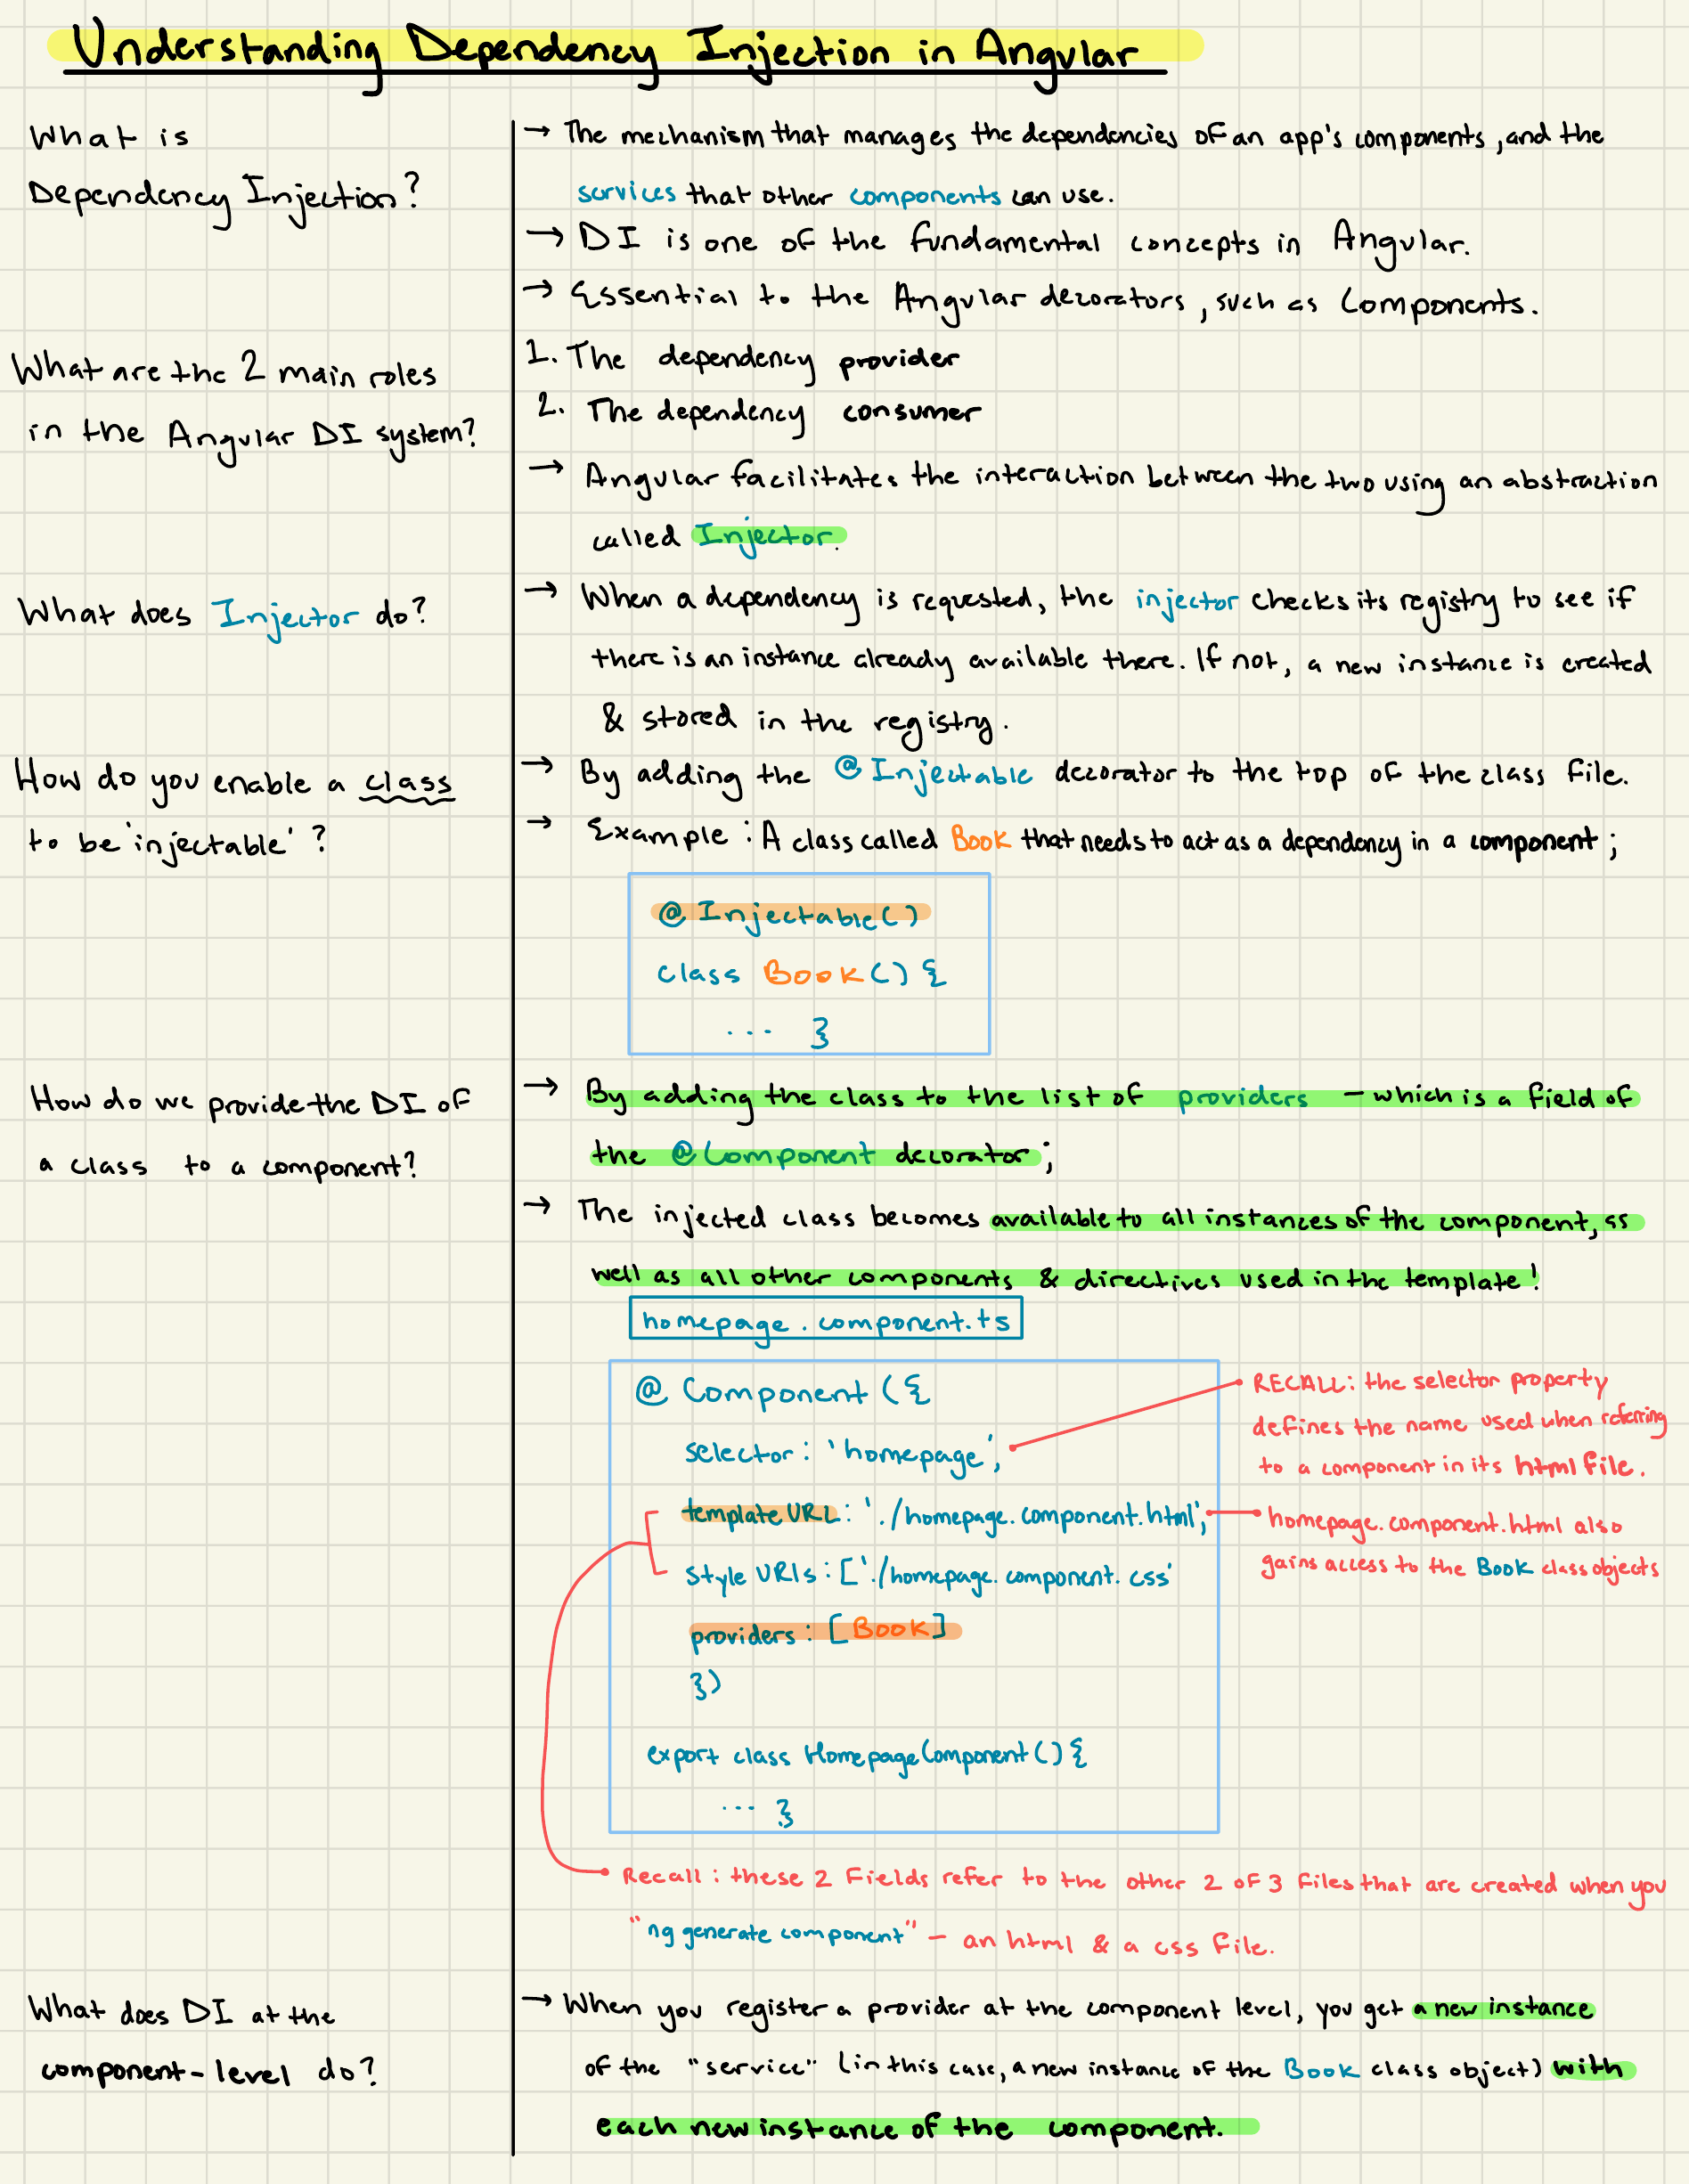 Understanding Dependency Injection in Angular
What is
Dependency Injection?
→ The mechanism that manages the dependencies of an app's components, and the
services that other components can use.
→ DI is one of the fundamental concepts in Angular.
→ Essential to the Angular decorators, such as Components.
What are the 2 main roles
in the Angular DI system?
1. The dependency provider
2. The dependency consumer
→ Angular facilitates the interaction between the two using an abstraction
called Injector.
What does Injector do?
→ When a dependency is requested, the injector checks its registry to see if
there is an instance already available there. If not, a new instance is created
& stored in the registry.
How do you enable a class
to be 'injectable'?
→ By adding the @Injectable decorator to the top of the class file.
→ Example: A class called Book that needs to act as a dependency in a component;
@Injectable()
class Book() {
... }
How do we provide the DI of
a class to a component?
→ By adding the class to the list of providers – which is a field of
the @Component decorator;
→ The injected class becomes available to all instances of the component, as
well as all other components & directives used in the template!
homepage.component.ts
@Component({
selector: 'homepage',
templateURL: './homepage.component.html',
styleURLs: ['./homepage.component.css'
providers: [Book]
})
export class HomepageComponent() {
... }
RECALL: the selector property
defines the name used when referring
to a component in its html file.
homepage.component.html also
gains access to the Book class objects
Recall: these 2 Fields refer to the other 2 of 3 files that are created when you
"ng generate component" – an html & a css file.
What does DI at the
component-level do?
→ When you register a provider at the component level, you get a new instance
of the "service" (in this case, a new instance of the Book class object) with
each new instance of the component.